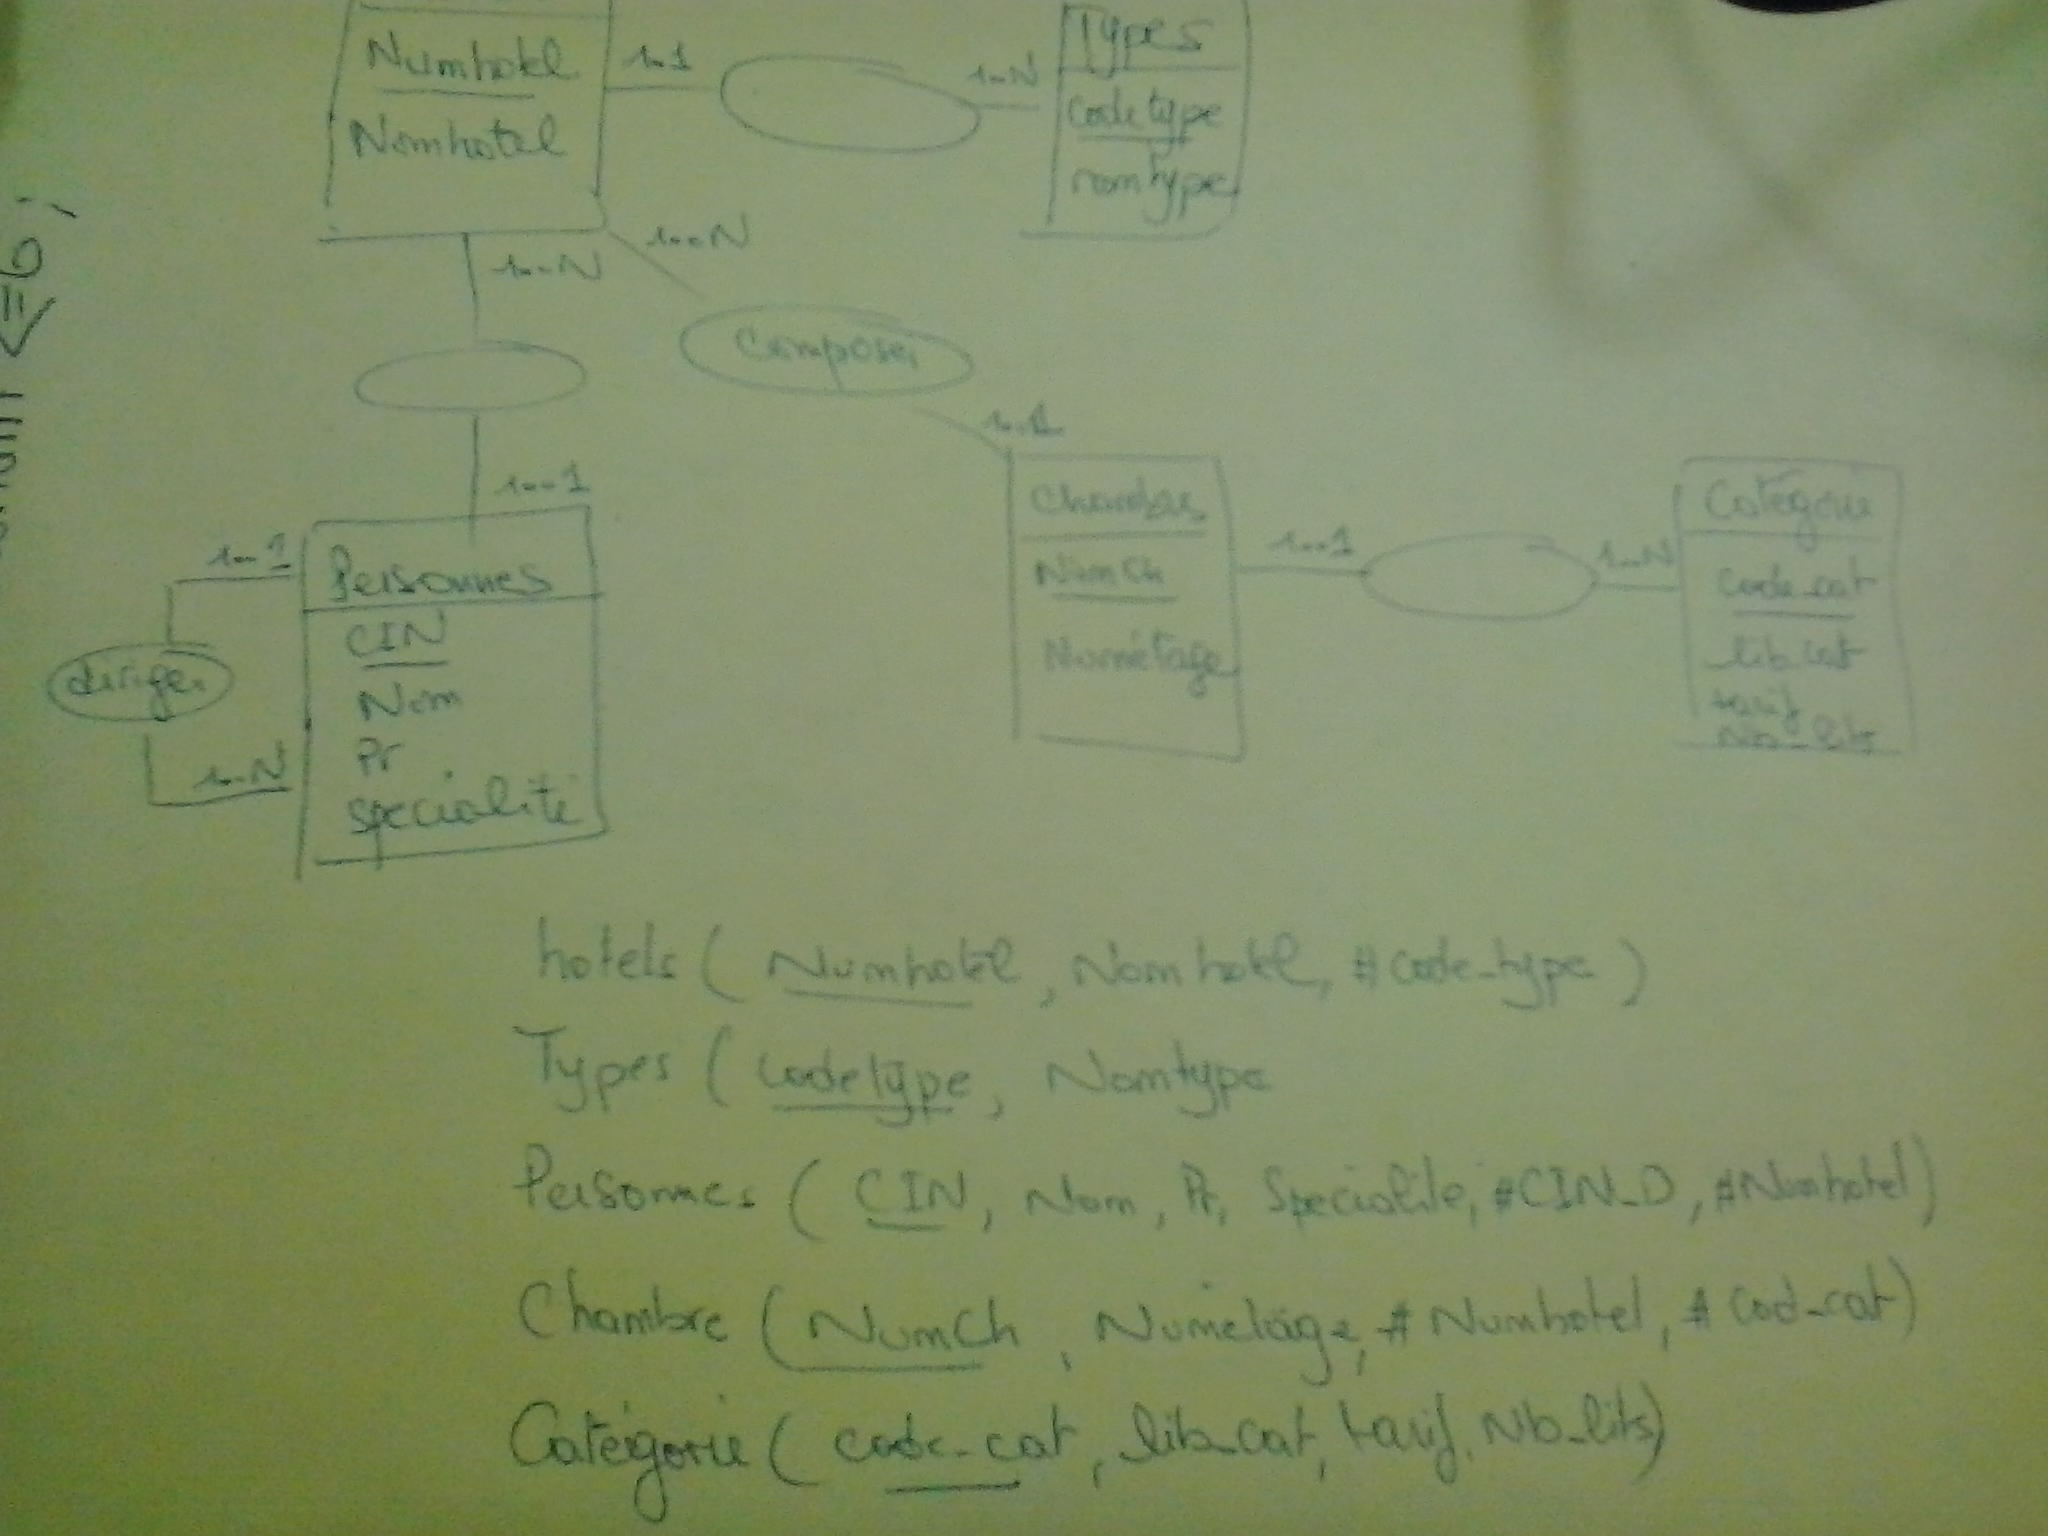 Numhotel
Nomhotel
1..1
1..N
Types
codetype
nomtype
1...N
1...N
Composer
1..1
1...1
Personnes
CIN
Nom
Pr
specialité
1...1
diriger
1..N
Chambres
NumCh
Numétage
1...1
1..N
Catégorie
code_cat
lib_cat
tarif
Nb_lits
hotels ( Numhotel , Nomhotel, #code_type )
Types ( codetype , Nomtype
Personnes ( CIN, Nom, Pr, Specialite, #CIN_D , #Numhotel)
Chambre ( NumCh , Numétage, # Numhotel, # cod_cat)
Catégorie ( code_cat , lib_cat, tarif, Nb_lits)